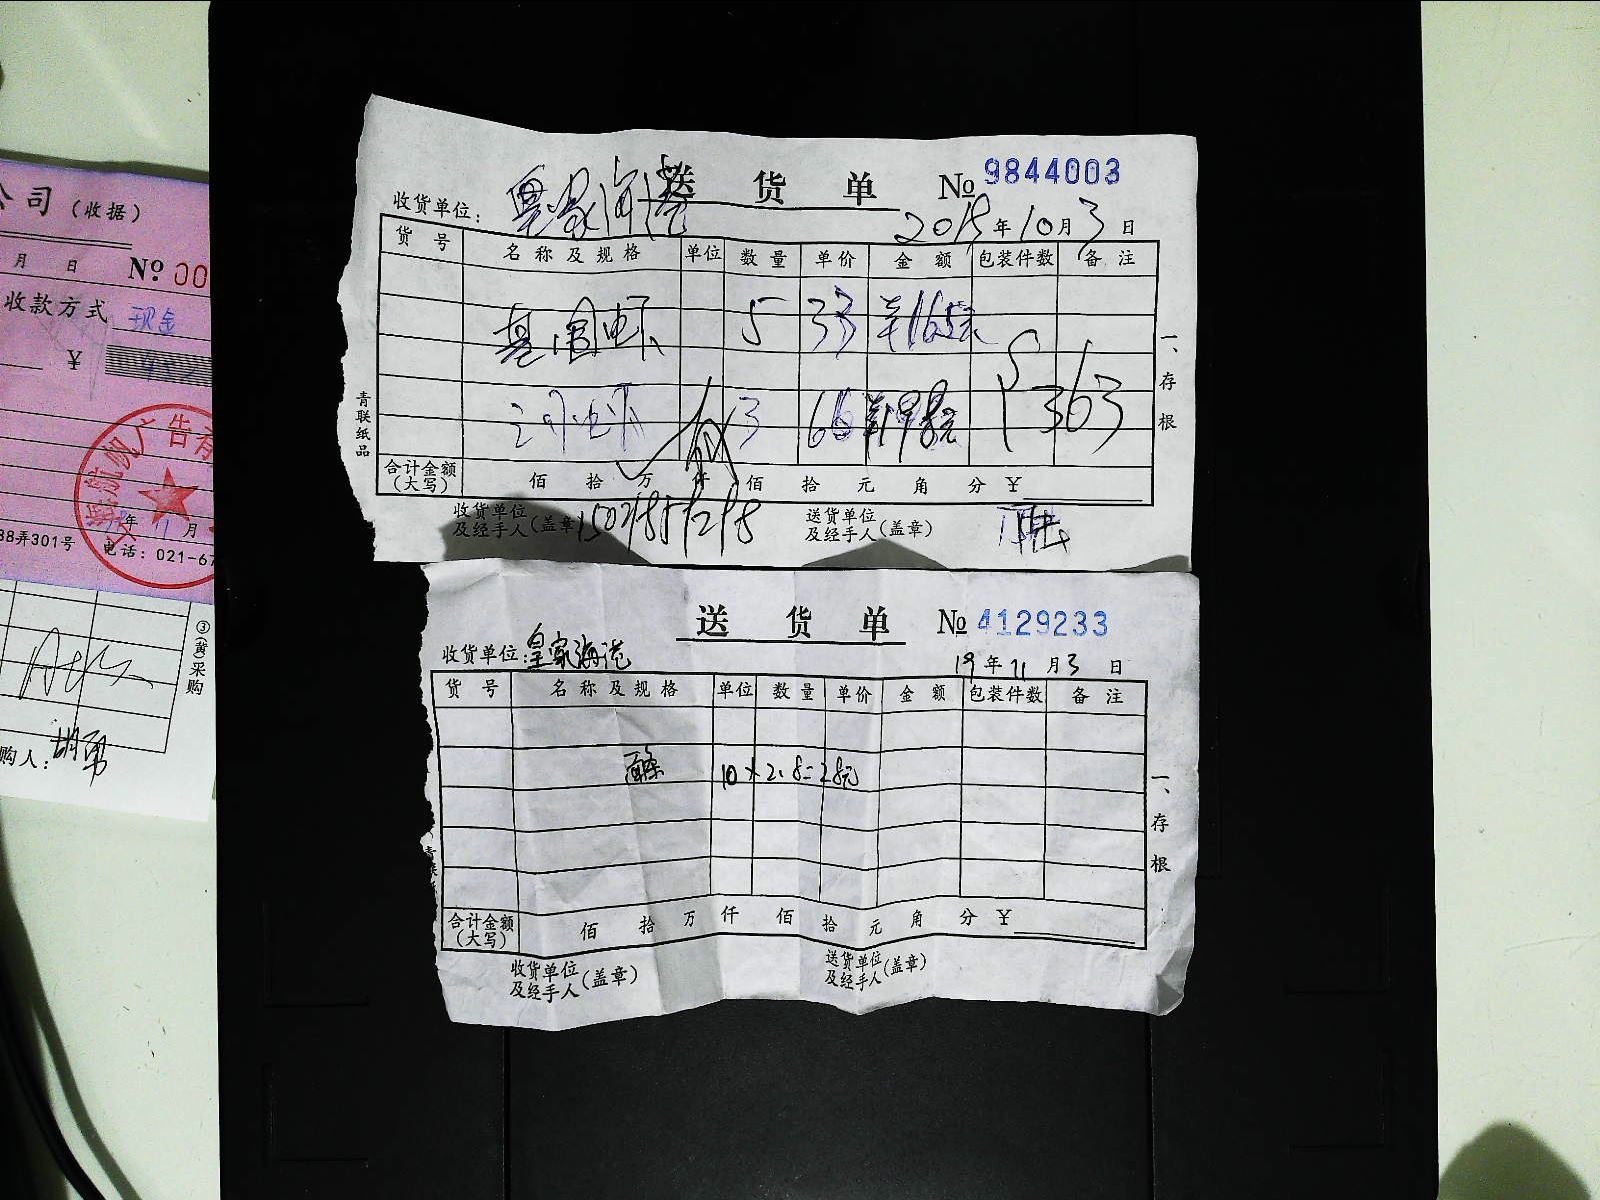 公司（收据）
月 日 № 00
收款方式 现金
¥
广告有
年 11 月
88弄301号 电话：021-67
③(黄)采购
购人：胡勇
送货单 № 9844003
收货单位：皇家海港 2015年10月3日
货号 名称及规格 单位 数量 单价 金额 包装件数 备注
基围虾 5 33 165元
3 66 198元 363
合计金额（大写） 佰 拾 万 仟 佰 拾 元 角 分 ¥
收货单位及经手人（盖章） 送货单位及经手人（盖章）
一、存根
青联纸品
送货单 № 4129233
收货单位：皇家海港 19年11月3日
货号 名称及规格 单位 数量 单价 金额 包装件数 备注
10×2.8=28元
合计金额（大写） 佰 拾 万 仟 佰 拾 元 角 分 ¥
收货单位及经手人（盖章） 送货单位及经手人（盖章）
一、存根